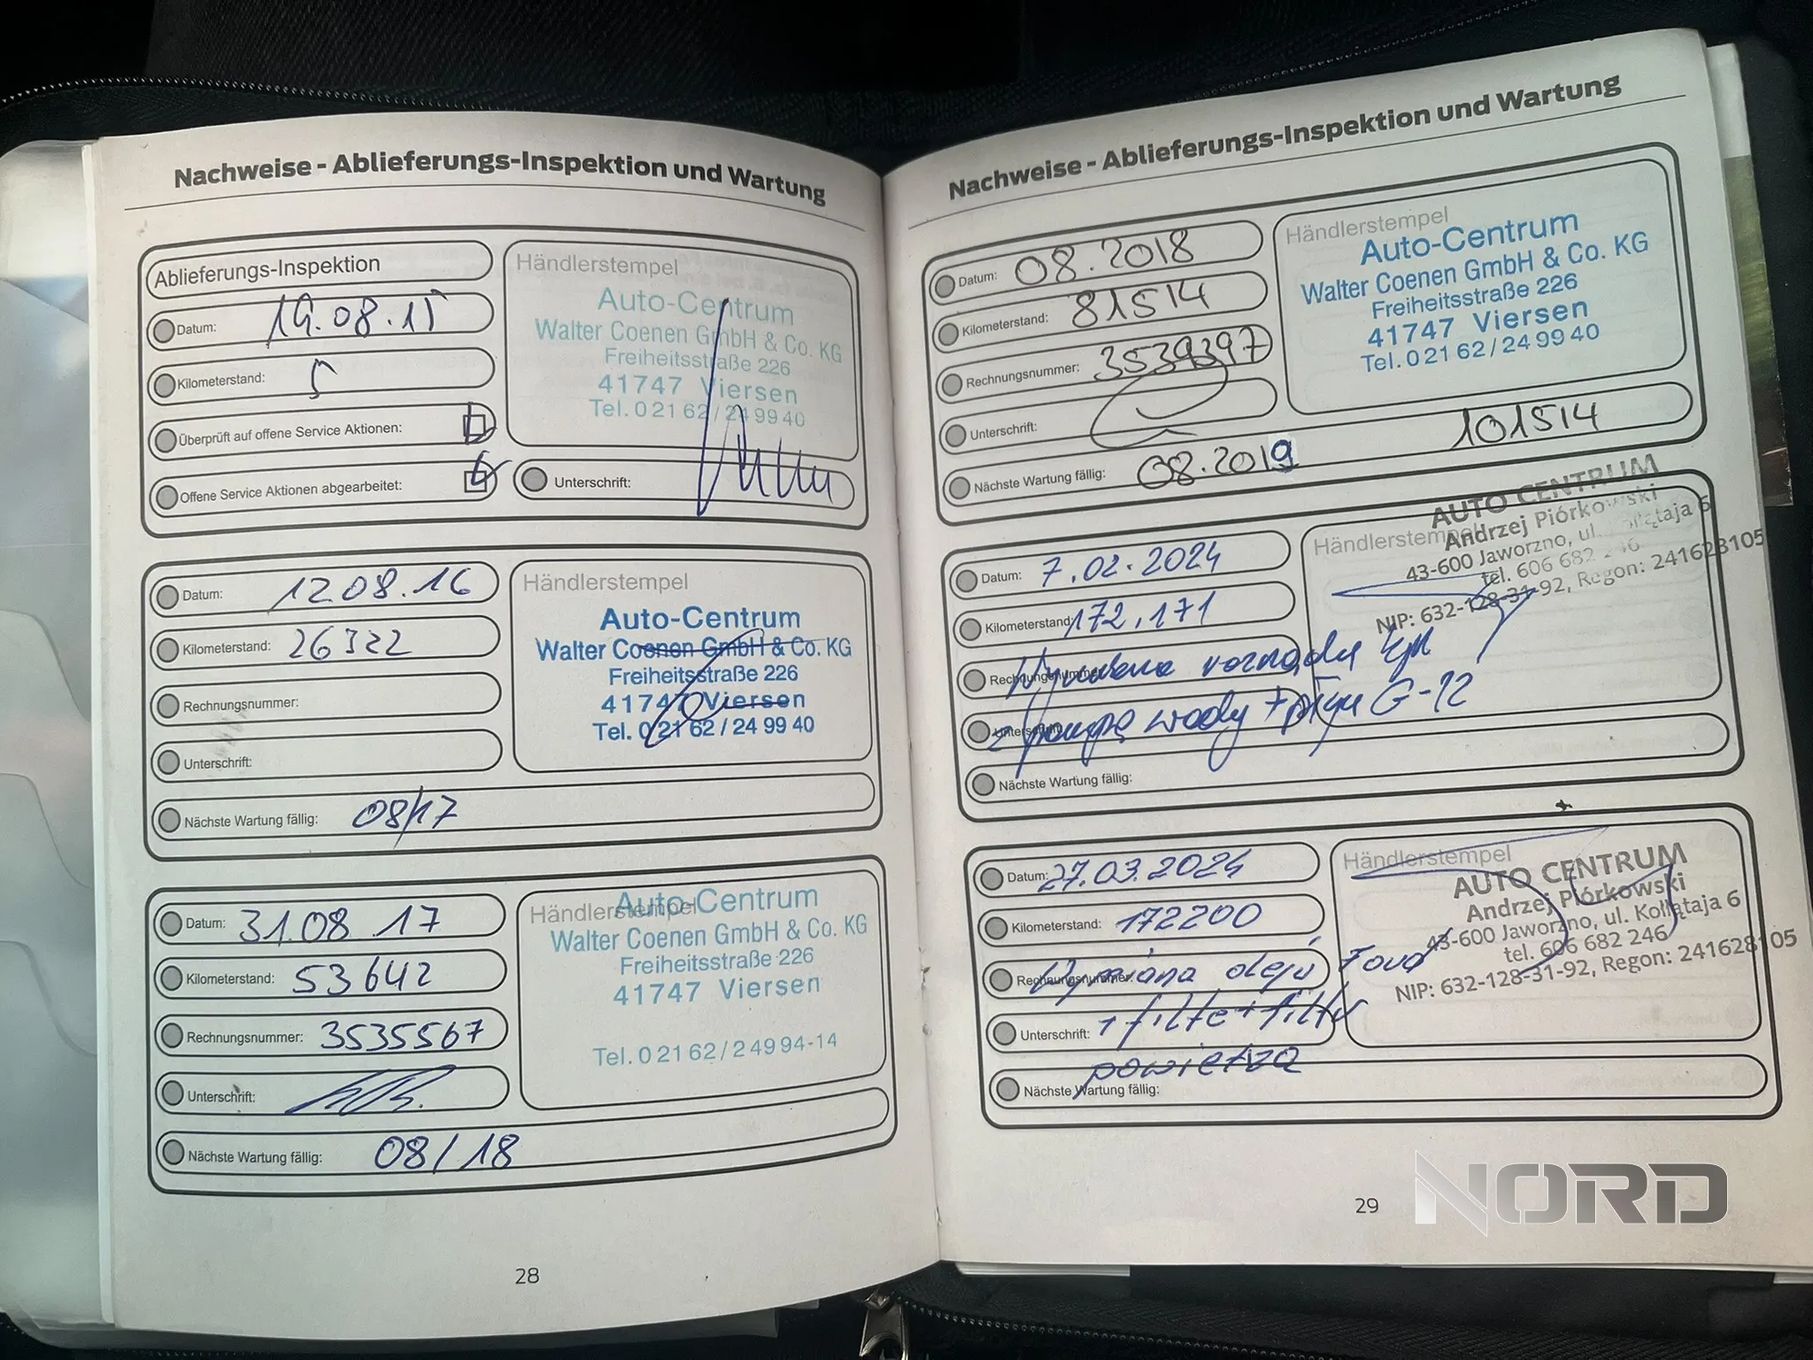 Nachweise - Ablieferungs-Inspektion und Wartung
Ablieferungs-Inspektion
Datum: 19.08.15
Kilometerstand: 5
Überprüft auf offene Service Aktionen:
Offene Service Aktionen abgearbeitet:
Händlerstempel
Auto-Centrum
Walter Coenen GmbH & Co. KG
Freiheitsstraße 226
41747 Viersen
Tel. 0 21 62 / 24 99 40
Unterschrift:
Datum: 12.08.16
Kilometerstand: 26322
Rechnungsnummer:
Unterschrift:
Nächste Wartung fällig: 08/17
Händlerstempel
Auto-Centrum
Walter Coenen GmbH & Co. KG
Freiheitsstraße 226
41747 Viersen
Tel. 0 21 62 / 24 99 40
Datum: 31.08.17
Kilometerstand: 53642
Rechnungsnummer: 3535567
Unterschrift:
Nächste Wartung fällig: 08/18
Händlerstempel
Auto-Centrum
Walter Coenen GmbH & Co. KG
Freiheitsstraße 226
41747 Viersen
Tel. 0 21 62 / 2 49 94-14
28
Nachweise - Ablieferungs-Inspektion und Wartung
Datum: 08.2018
Kilometerstand: 81514
Rechnungsnummer: 3539397
Unterschrift:
Nächste Wartung fällig: 08.2019 101514
Händlerstempel
Auto-Centrum
Walter Coenen GmbH & Co. KG
Freiheitsstraße 226
41747 Viersen
Tel. 0 21 62 / 24 99 40
Datum: 7.02.2024
Kilometerstand: 172,171
Rechnungsnummer:
Unterschrift:
z pompą wody + płyn G-12
Nächste Wartung fällig:
Händlerstempel
AUTO CENTRUM
Andrzej Piórkowski
43-600 Jaworzno, ul. Kołłątaja 6
tel. 606 682 246
NIP: 632-128-31-92, Regon: 241628105
Datum: 27.03.2024
Kilometerstand: 172200
Rechnungsnummer: Wymiana oleju
Unterschrift: + filtr + filtr
powietrza
Nächste Wartung fällig:
Händlerstempel
AUTO CENTRUM
Andrzej Piórkowski
43-600 Jaworzno, ul. Kołłątaja 6
tel. 606 682 246
NIP: 632-128-31-92, Regon: 241628105
29
NORD